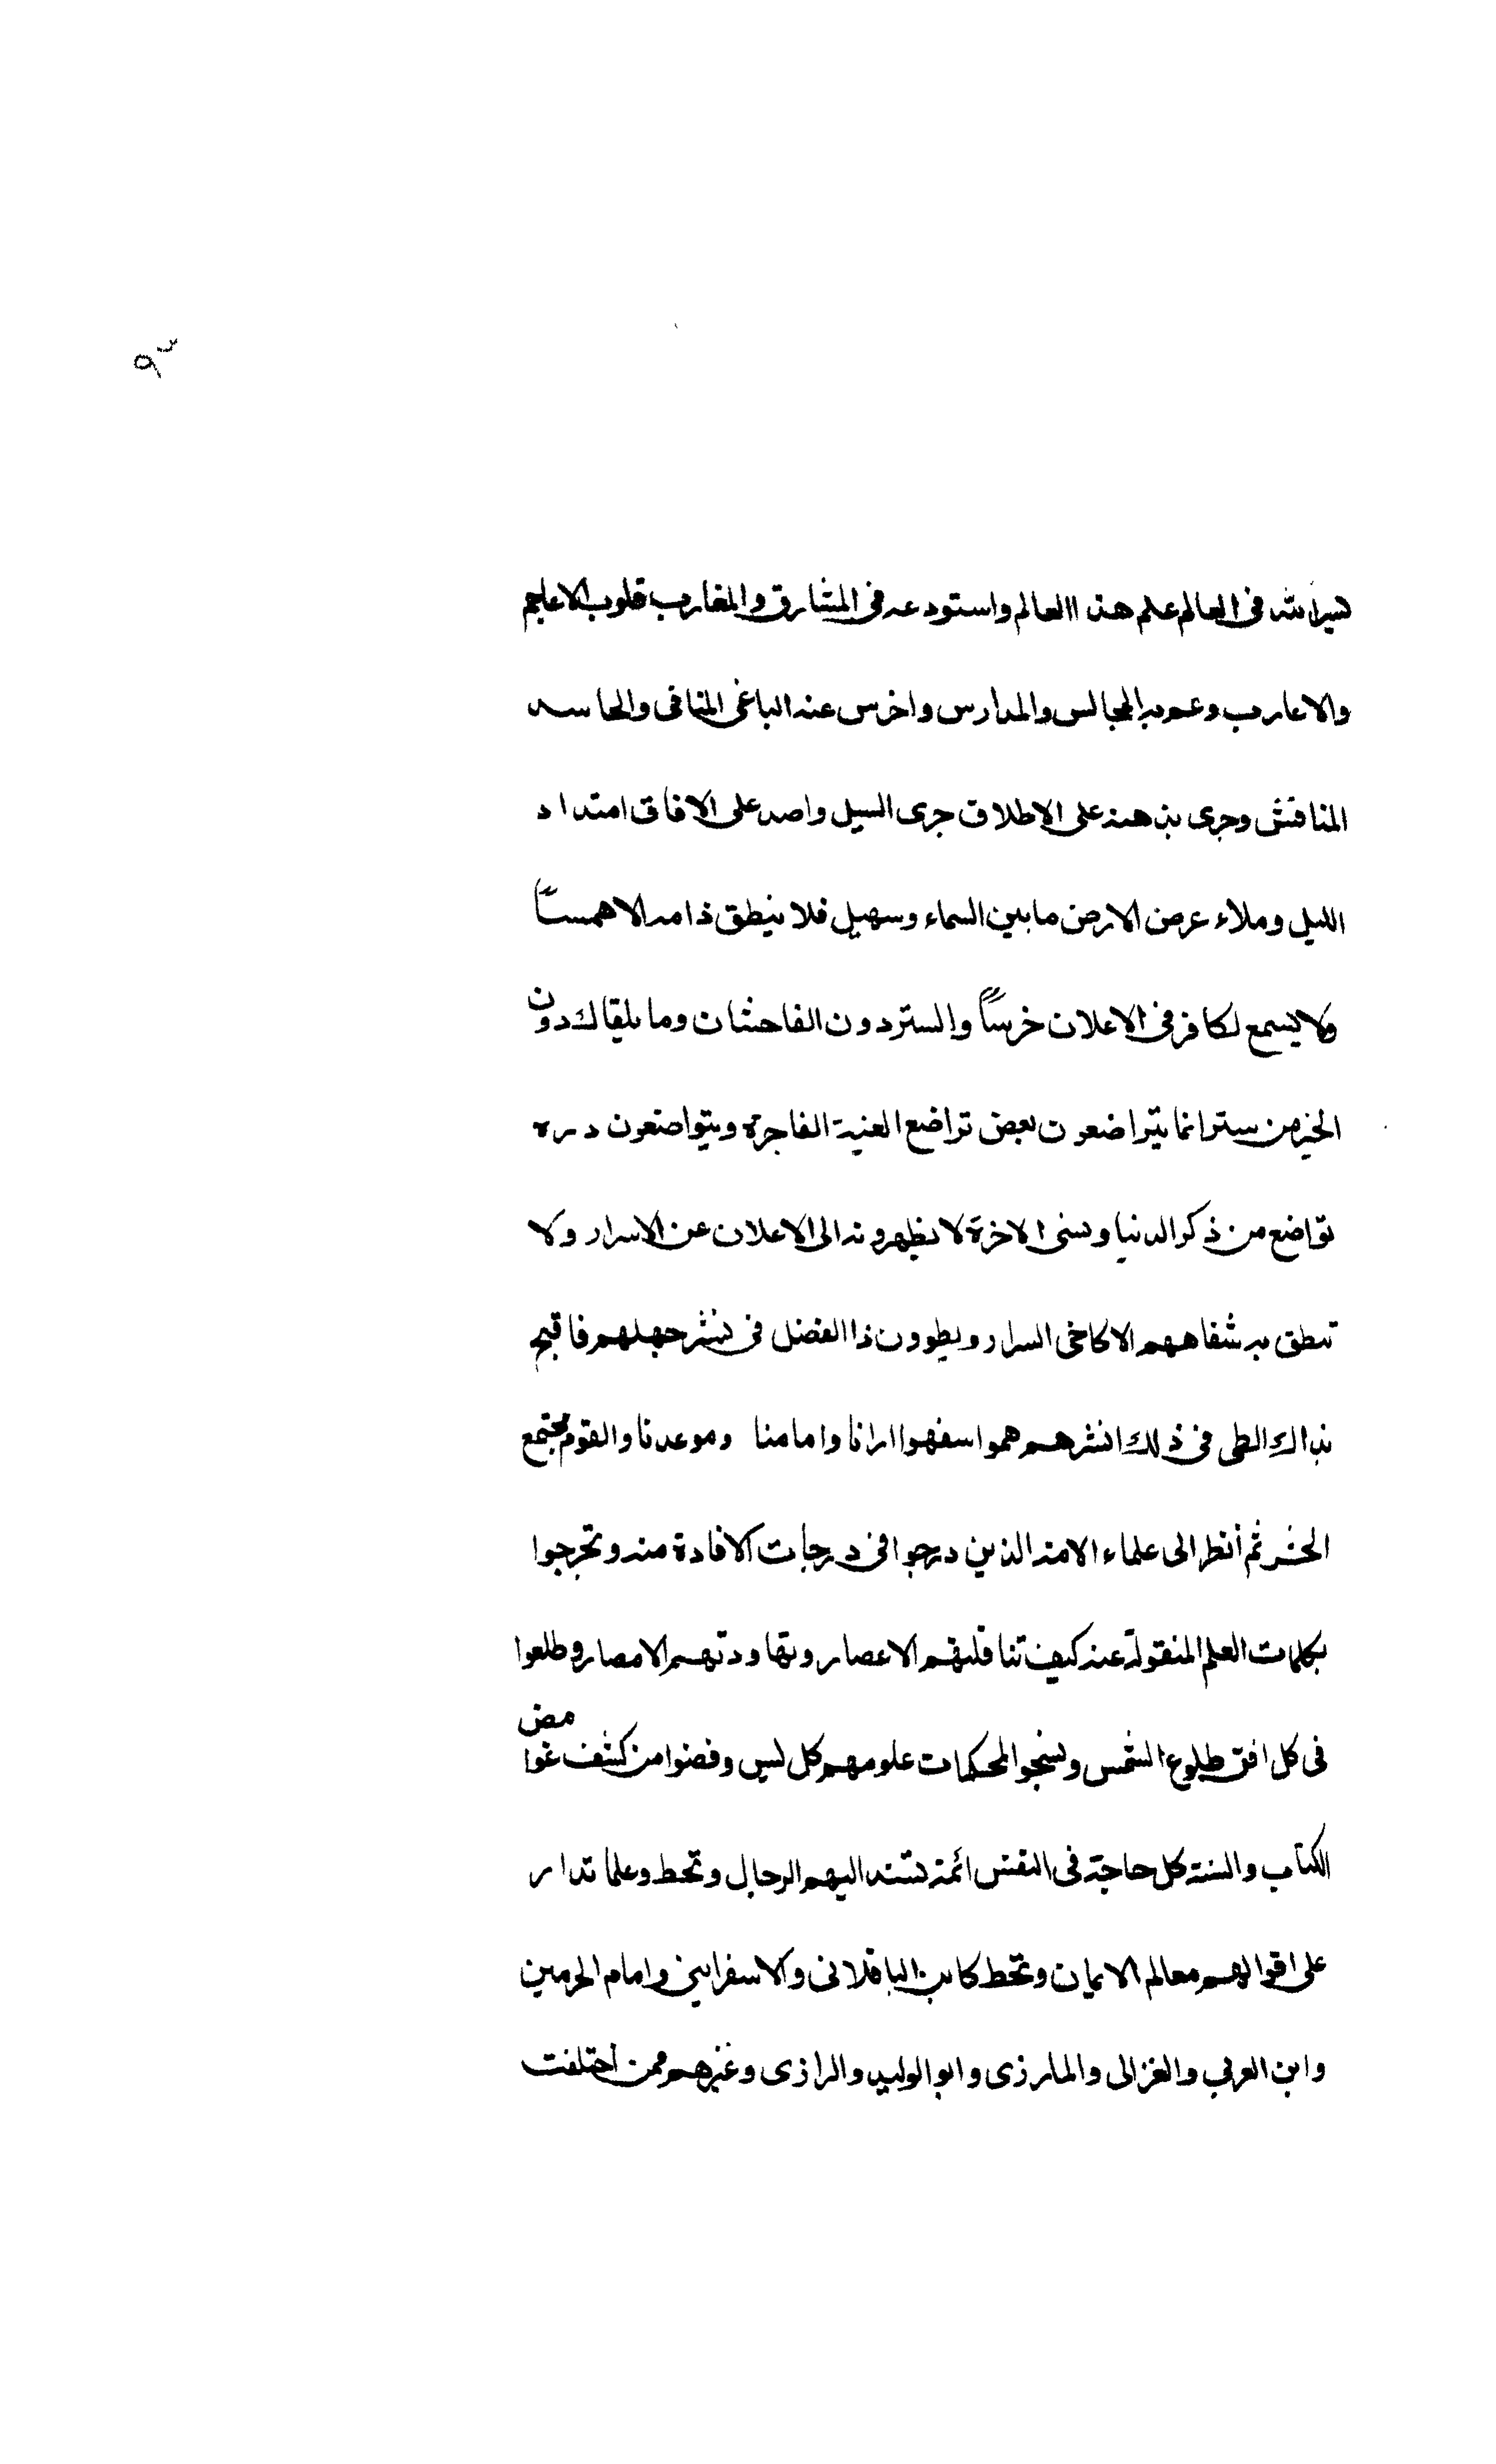 ٩٣
سيرالله فى العالم علم هذا العالم واستودعه فى المشارق والمغارب قلوب الاعاجم
والاعارب وعمر به المجالس والمدارس واخرس عنه الباغى المنافى والحاسد
المنافش وجرى بذهنه على الاطلاق جرى السيل وامد على الافاق امتداد
الليل وملاء عرض الارض مابين السماء وسهيل فلا ينطق ذامه الا همساً
ولا يسمع لكافر فى الاعلان خرساً والستر دون الفاحشات وما يلقاك دون
الخير من ستر انما يتراضعون بعض تراضع الفاجرة ويتواضعون دره
تواضع من ذكر الدنيا ونسى الاخرة لا يظهرونه الى الاعلان عن الاسرار ولا
تنطق به شفاههم الا كاخى السرار ويطوون ذا الفضل فى نشر جهلهم فاقبح
بذاك الطى فى ذلك النشر هم هموا سفهوا ارانا وامامنا وموعدنا والقوم مجتمع
الحشر ثم أنظر الى علماء الامة الذين درجوا فى درجات الافادة منه وتخرجوا
بكلمات العلم المنقولة عنه كيف تناقلتهم الاعصار وتهاودتهم الامصار وطلعوا
فى كل افق طلوع الشمس ونسخوا بمحكمات علومهم كل لبس وقضوا من كشف غوامض
الكتاب والسنة كل حاجة فى النفس ائمة تشد اليهم الرحال وتحط وعلما تدار
على اقوالهم معالم الايمان وتخط كابن الباقلانى والاسفراينى وامام الحرمين
وابن العربي والغزالى والمازرى وابو الوليد والرازى وغيرهم ممن اختلفت